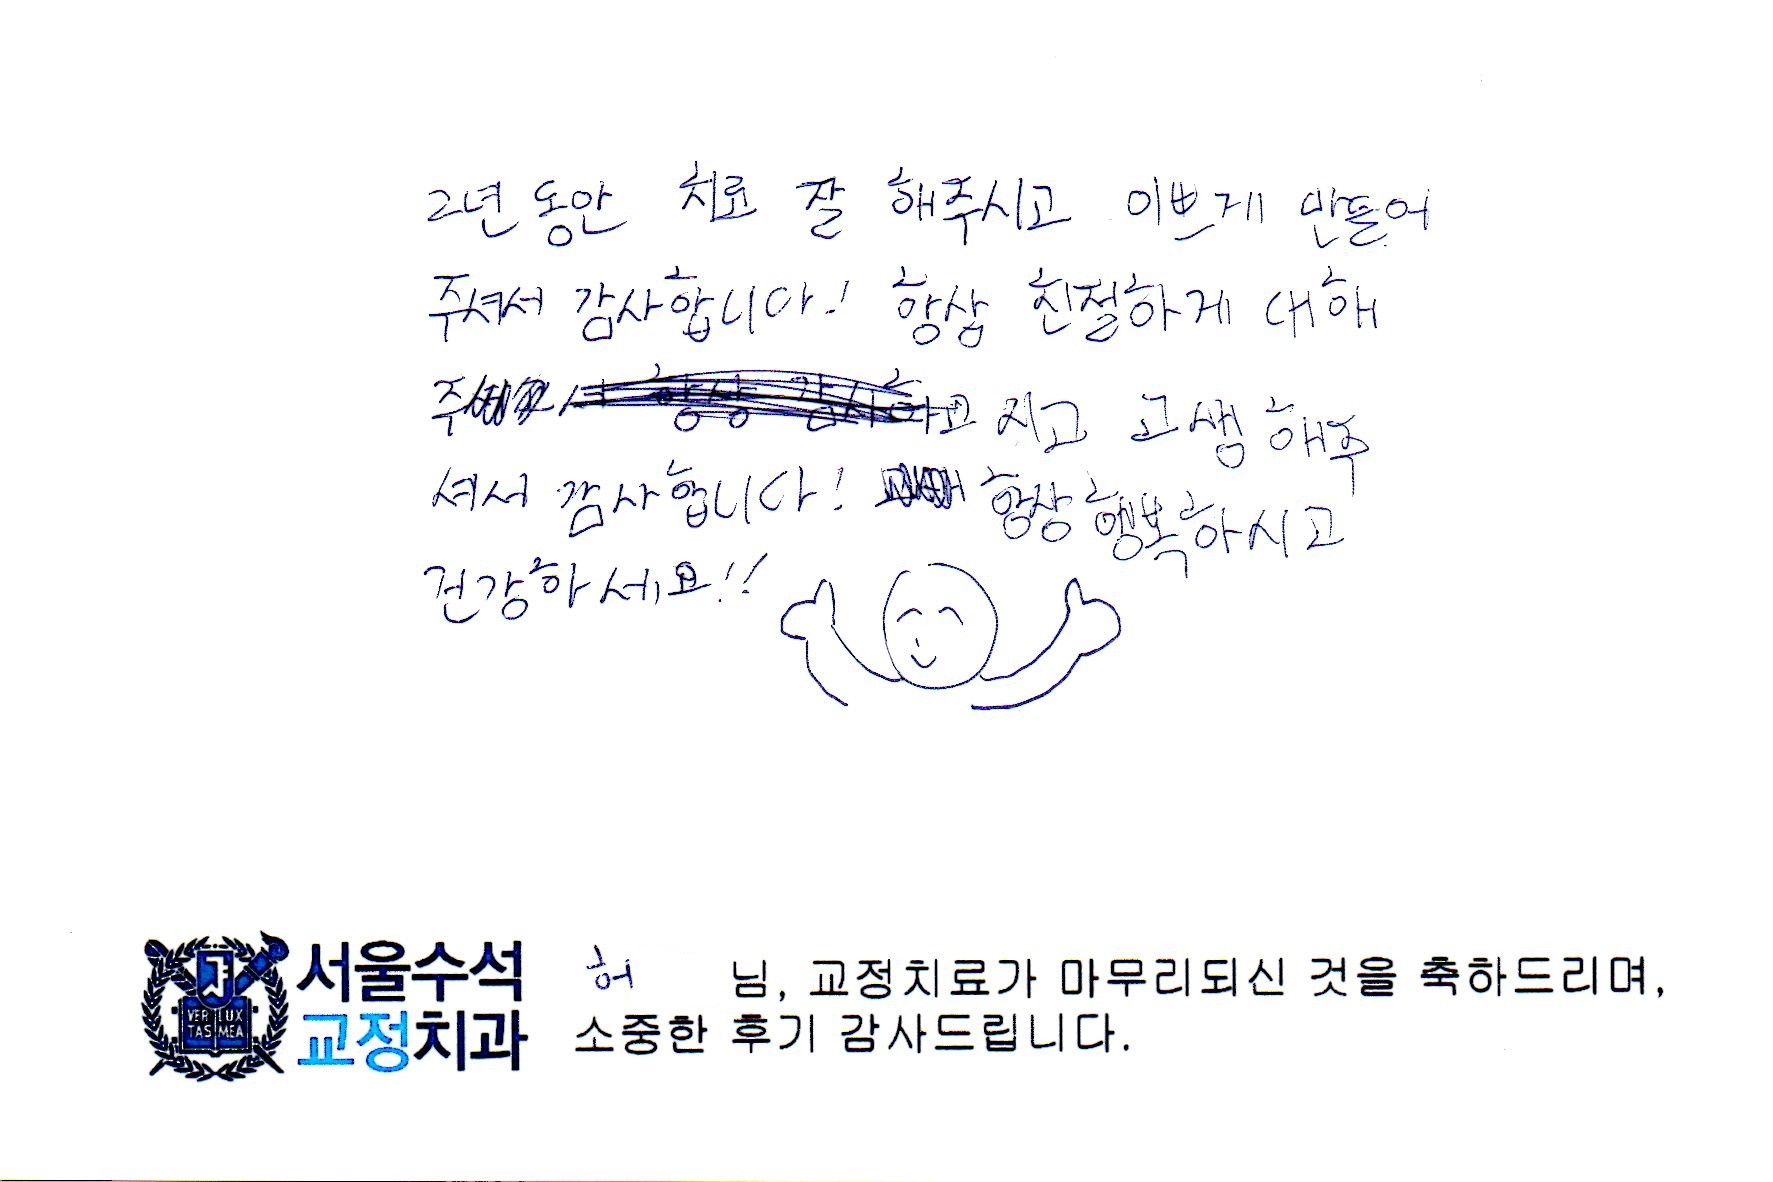 2년 동안 치료 잘 해주시고 이쁘게 만들어
주셔서 감사합니다! 항상 친절하게 대해
주 시고 고생해주
셔서 감사합니다! 항상 행복하시고
건강하세요!!
서울수석
교정치과
VERI LUX
TAS MEA
허 님, 교정치료가 마무리되신 것을 축하드리며,
소중한 후기 감사드립니다.